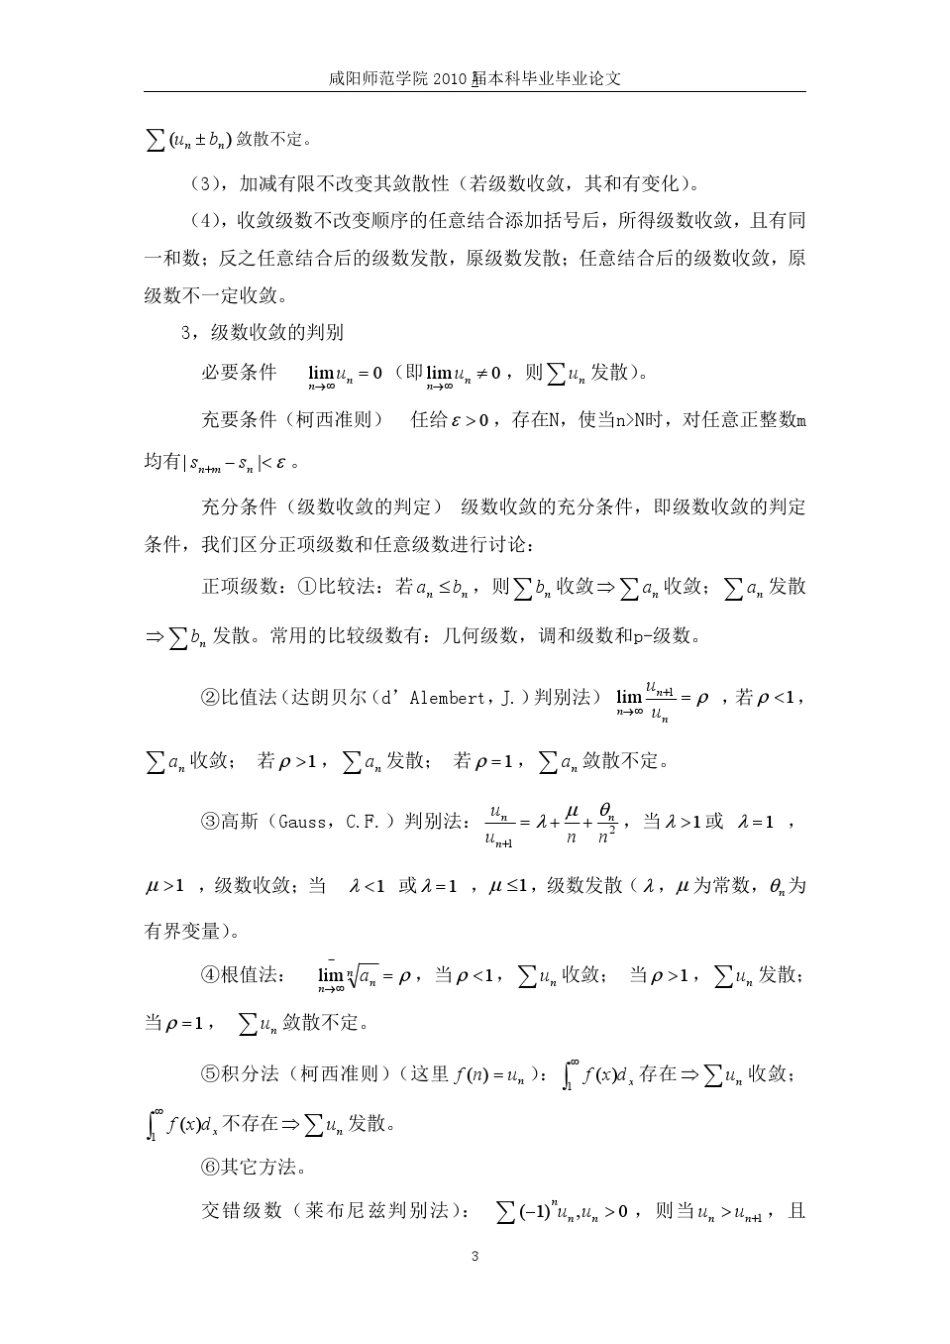 咸阳师范学院 2010 届本科毕业毕业论文
∑(uₙ ± bₙ) 敛散不定。
（3），加减有限不改变其敛散性（若级数收敛，其和有变化）。
（4），收敛级数不改变顺序的任意结合添加括号后，所得级数收敛，且有同
一和数；反之任意结合后的级数发散，原级数发散；任意结合后的级数收敛，原
级数不一定收敛。
3，级数收敛的判别
必要条件 lim_{n→∞} uₙ = 0（即 lim_{n→∞} uₙ ≠ 0，则∑uₙ 发散）。
充要条件（柯西准则） 任给 ε > 0，存在N，使当n>N时，对任意正整数m
均有| s_{n+m} − sₙ |< ε 。
充分条件（级数收敛的判定） 级数收敛的充分条件，即级数收敛的判定
条件，我们区分正项级数和任意级数进行讨论：
正项级数：①比较法：若 aₙ ≤ bₙ，则∑bₙ 收敛⇒∑aₙ 收敛；∑aₙ 发散
⇒∑bₙ 发散。常用的比较级数有：几何级数，调和级数和p-级数。
②比值法（达朗贝尔（d’Alembert，J.）判别法） lim_{n→∞} u_{n+1}/uₙ = ρ ，若 ρ <1，
∑aₙ 收敛； 若 ρ >1，∑aₙ 发散； 若 ρ =1，∑aₙ 敛散不定。
③高斯（Gauss，C.F.）判别法：uₙ/u_{n+1} = λ + μ/n + θₙ/n²，当 λ >1或 λ =1 ，
μ >1 ，级数收敛；当 λ <1 或 λ =1 ，μ ≤1，级数发散（ λ ，μ 为常数，θₙ 为
有界变量）。
④根值法： lim̅_{n→∞} ⁿ√aₙ = ρ，当 ρ <1，∑uₙ 收敛； 当 ρ >1，∑uₙ 发散；
当 ρ =1， ∑uₙ 敛散不定。
⑤积分法（柯西准则）（这里 f(n) = uₙ ）：∫₁^∞ f(x)dₓ 存在⇒∑uₙ 收敛；
∫₁^∞ f(x)dₓ 不存在⇒∑uₙ 发散。
⑥其它方法。
交错级数（莱布尼兹判别法）： ∑(−1)ⁿuₙ,uₙ > 0，则当 uₙ > u_{n+1}，且
3